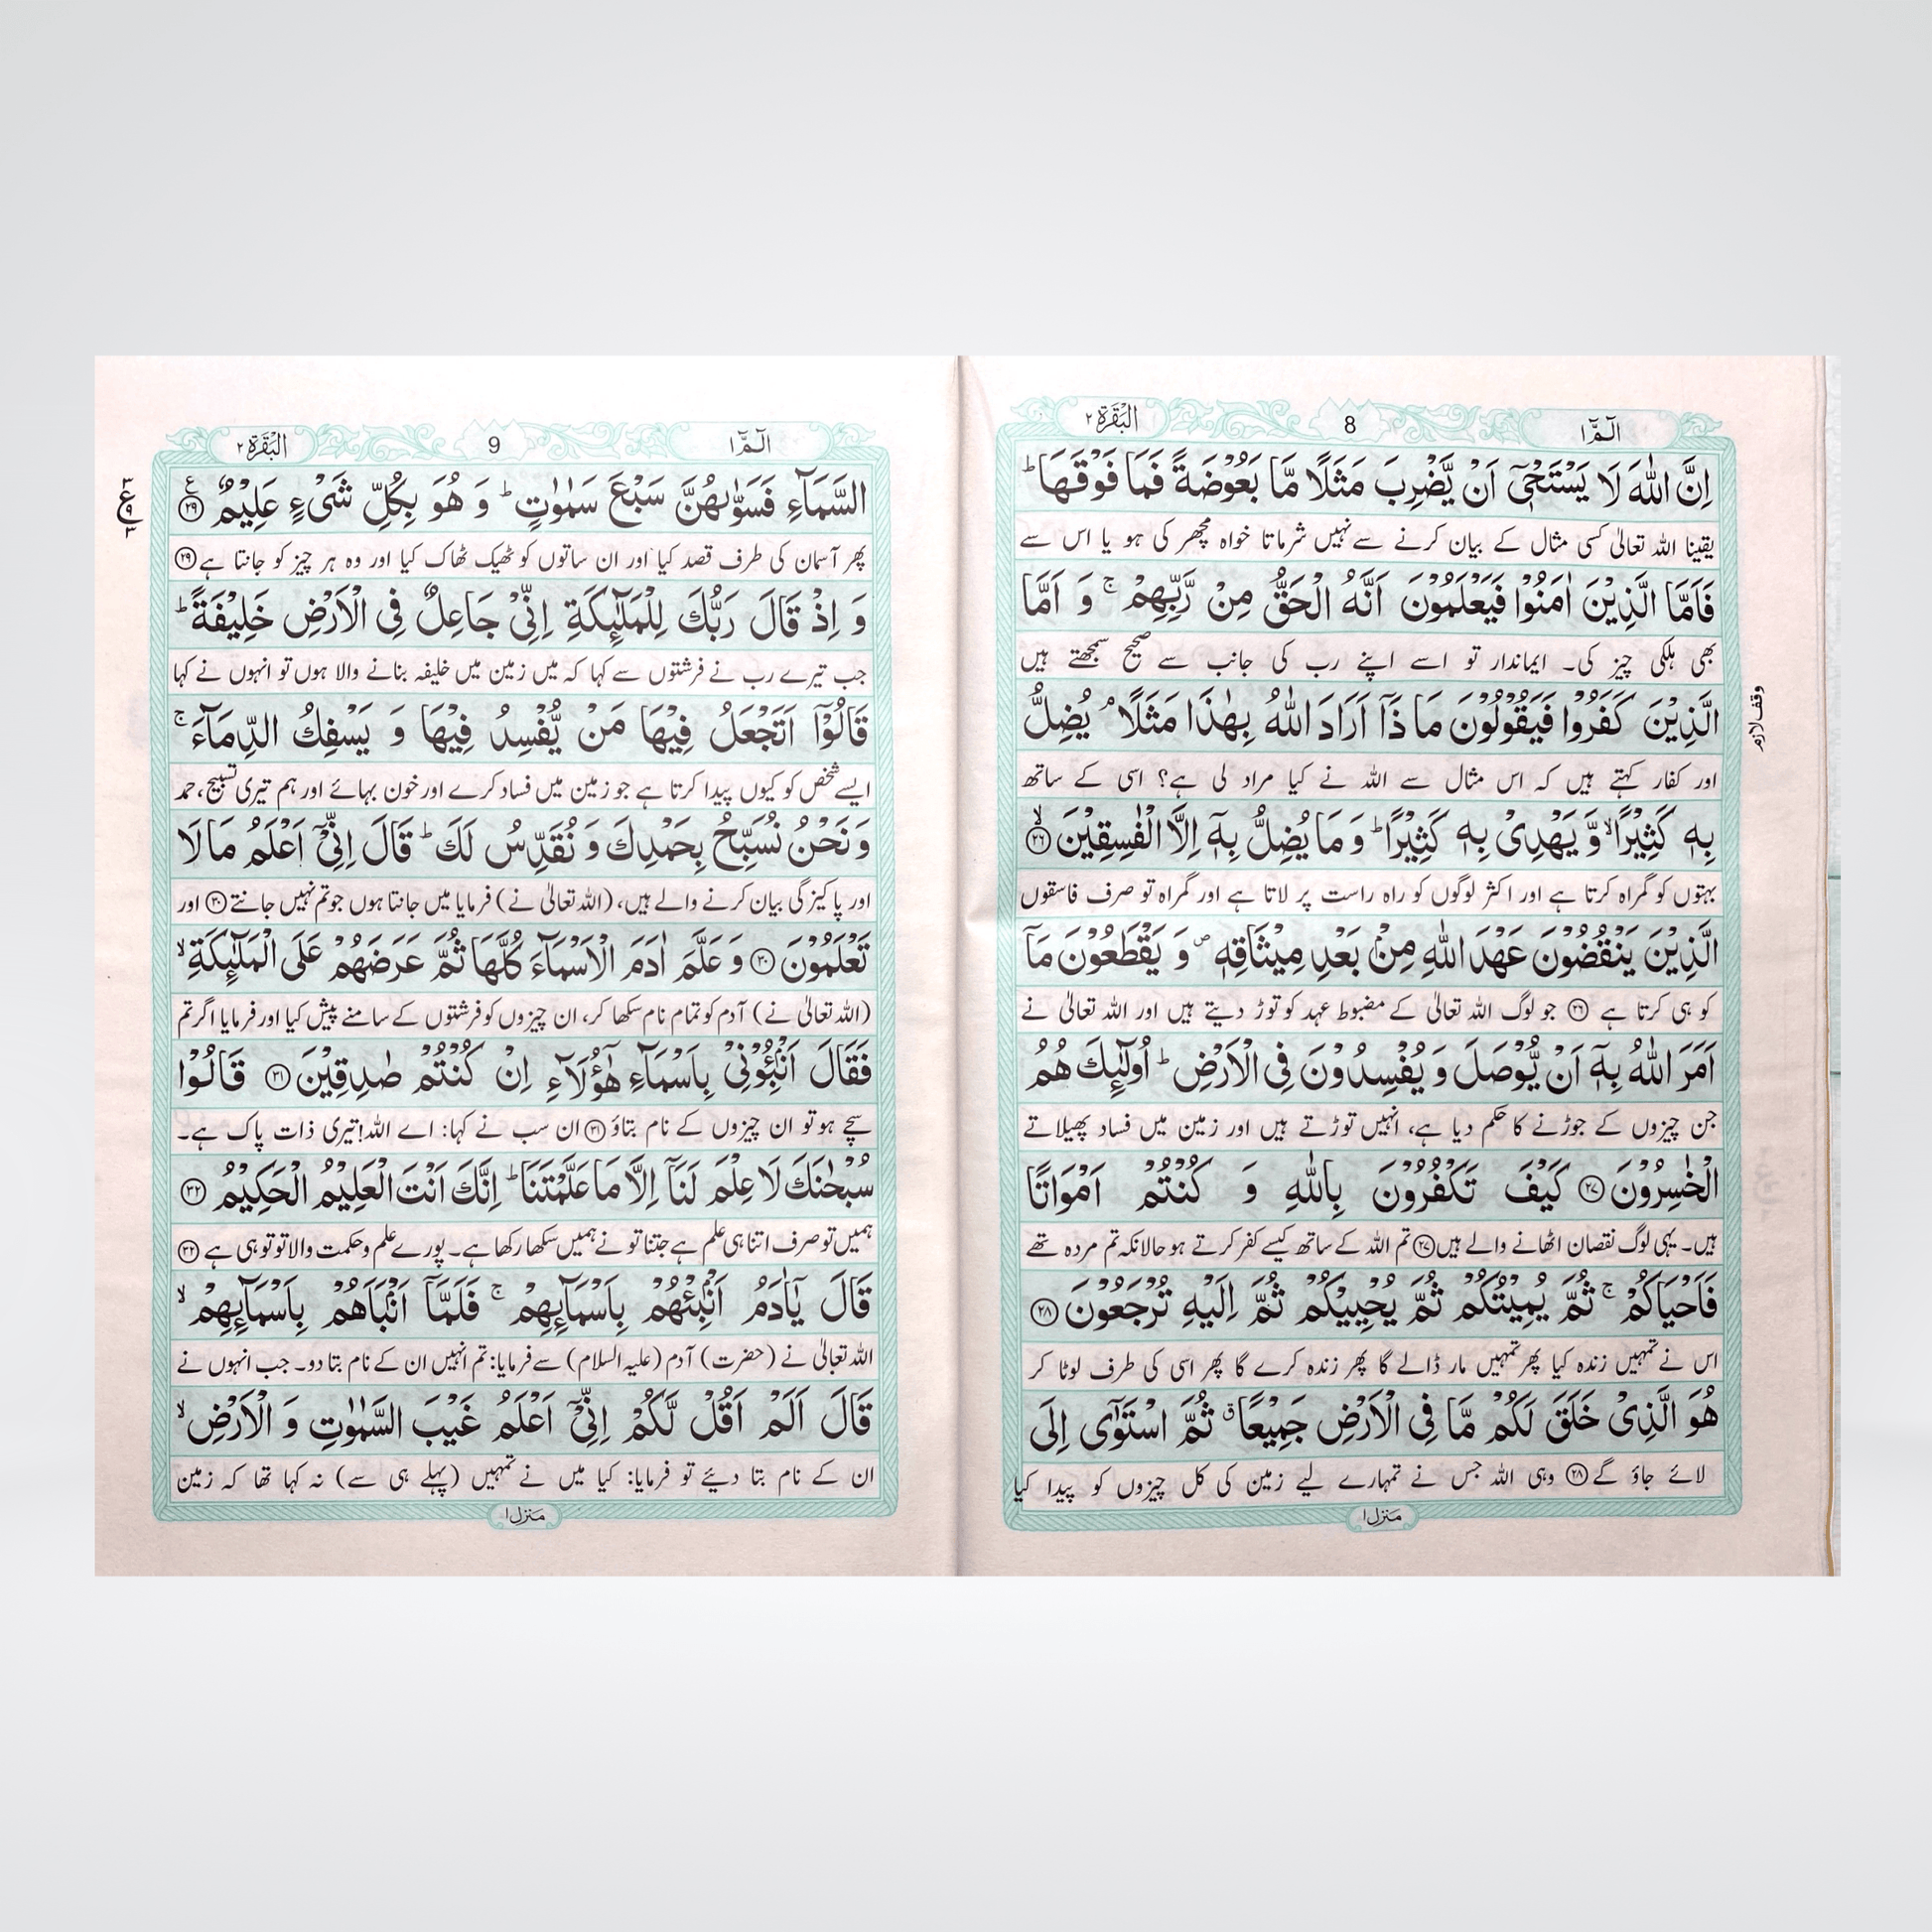 الٓمّٓ ١
8
البقرة ٢
اِنَّ اللّٰهَ لَا يَسْتَحْيٖٓ اَنْ يَّضْرِبَ مَثَلًا مَّا بَعُوْضَةً فَمَا فَوْقَهَا ؕ
یقینا اللہ تعالیٰ کسی مثال کے بیان کرنے سے نہیں شرماتا خواہ مچھر کی ہو یا اس سے
فَاَمَّا الَّذِيْنَ اٰمَنُوْا فَيَعْلَمُوْنَ اَنَّهُ الْحَقُّ مِنْ رَّبِّهِمْ ۚ وَ اَمَّا
بھی ہلکی چیز کی۔ ایماندار تو اسے اپنے رب کی جانب سے صحیح سمجھتے ہیں
الَّذِيْنَ كَفَرُوْا فَيَقُوْلُوْنَ مَا ذَاۤ اَرَادَ اللّٰهُ بِهٰذَا مَثَلًا ۘ يُضِلُّ
وقف لازم
اور کفار کہتے ہیں کہ اس مثال سے اللہ نے کیا مراد لی ہے؟ اسی کے ساتھ
بِهٖ كَثِيْرًا ۙ وَّ يَهْدِيْ بِهٖ كَثِيْرًا ؕ وَ مَا يُضِلُّ بِهٖۤ اِلَّا الْفٰسِقِيْنَ ۙ ﴿۲۶﴾
بہتوں کو گمراہ کرتا ہے اور اکثر لوگوں کو راہ راست پر لاتا ہے اور گمراہ تو صرف فاسقوں
الَّذِيْنَ يَنْقُضُوْنَ عَهْدَ اللّٰهِ مِنْۢ بَعْدِ مِيْثَاقِهٖ ۪ وَ يَقْطَعُوْنَ مَاۤ
کو ہی کرتا ہے ﴿۲۶﴾ جو لوگ اللہ تعالیٰ کے مضبوط عہد کو توڑ دیتے ہیں اور اللہ تعالیٰ نے
اَمَرَ اللّٰهُ بِهٖۤ اَنْ يُّوْصَلَ وَ يُفْسِدُوْنَ فِي الْاَرْضِ ؕ اُولٰٓئِكَ هُمُ
جن چیزوں کے جوڑنے کا حکم دیا ہے، انہیں توڑتے ہیں اور زمین میں فساد پھیلاتے
الْخٰسِرُوْنَ ﴿۲۷﴾ كَيْفَ تَكْفُرُوْنَ بِاللّٰهِ وَ كُنْتُمْ اَمْوَاتًا
ہیں۔ یہی لوگ نقصان اٹھانے والے ہیں ﴿۲۷﴾ تم اللہ کے ساتھ کیسے کفر کرتے ہو حالانکہ تم مردہ تھے
فَاَحْيَاكُمْ ۚ ثُمَّ يُمِيْتُكُمْ ثُمَّ يُحْيِيْكُمْ ثُمَّ اِلَيْهِ تُرْجَعُوْنَ ﴿۲۸﴾
اس نے تمہیں زندہ کیا پھر تمہیں مار ڈالے گا پھر زندہ کرے گا پھر اسی کی طرف لوٹا کر
هُوَ الَّذِيْ خَلَقَ لَكُمْ مَّا فِي الْاَرْضِ جَمِيْعًا ۗ ثُمَّ اسْتَوٰۤى اِلَى
لائے جاؤ گے ﴿۲۸﴾ وہی اللہ جس نے تمہارے لیے زمین کی کل چیزوں کو پیدا کیا
منزل ١
الٓمّٓ ١
9
البقرة ٢
السَّمَآءِ فَسَوّٰىهُنَّ سَبْعَ سَمٰوٰتٍ ؕ وَ هُوَ بِكُلِّ شَيْءٍ عَلِيْمٌ ﴿۲۹﴾ ع
۳ ع ۹ ۳
پھر آسمان کی طرف قصد کیا اور ان ساتوں کو ٹھیک ٹھاک کیا اور وہ ہر چیز کو جانتا ہے ﴿۲۹﴾
وَ اِذْ قَالَ رَبُّكَ لِلْمَلٰٓئِكَةِ اِنِّيْ جَاعِلٌ فِي الْاَرْضِ خَلِيْفَةً ؕ
جب تیرے رب نے فرشتوں سے کہا کہ میں زمین میں خلیفہ بنانے والا ہوں تو انہوں نے کہا
قَالُوْۤا اَتَجْعَلُ فِيْهَا مَنْ يُّفْسِدُ فِيْهَا وَ يَسْفِكُ الدِّمَآءَ ۚ
ایسے شخص کو کیوں پیدا کرتا ہے جو زمین میں فساد کرے اور خون بہائے اور ہم تیری تسبیح، حمد
وَ نَحْنُ نُسَبِّحُ بِحَمْدِكَ وَ نُقَدِّسُ لَكَ ؕ قَالَ اِنِّيْۤ اَعْلَمُ مَا لَا
اور پاکیزگی بیان کرنے والے ہیں، (اللہ تعالیٰ نے) فرمایا میں جانتا ہوں جو تم نہیں جانتے ﴿۳۰﴾ اور
تَعْلَمُوْنَ ﴿۳۰﴾ وَ عَلَّمَ اٰدَمَ الْاَسْمَآءَ كُلَّهَا ثُمَّ عَرَضَهُمْ عَلَى الْمَلٰٓئِكَةِ ۙ
(اللہ تعالیٰ نے) آدم کو تمام نام سکھا کر، ان چیزوں کو فرشتوں کے سامنے پیش کیا اور فرمایا اگر تم
فَقَالَ اَنْۢبِـُٔوْنِيْ بِاَسْمَآءِ هٰٓؤُلَآءِ اِنْ كُنْتُمْ صٰدِقِيْنَ ﴿۳۱﴾ قَالُوْا
سچے ہو تو ان چیزوں کے نام بتاؤ ﴿۳۱﴾ ان سب نے کہا: اے اللہ! تیری ذات پاک ہے۔
سُبْحٰنَكَ لَا عِلْمَ لَنَاۤ اِلَّا مَا عَلَّمْتَنَا ؕ اِنَّكَ اَنْتَ الْعَلِيْمُ الْحَكِيْمُ ﴿۳۲﴾
ہمیں تو صرف اتنا ہی علم ہے جتنا تو نے ہمیں سکھا رکھا ہے۔ پورے علم و حکمت والا تو تو ہی ہے ﴿۳۲﴾
قَالَ يٰۤاٰدَمُ اَنْۢبِئْهُمْ بِاَسْمَآئِهِمْ ۚ فَلَمَّاۤ اَنْۢبَاَهُمْ بِاَسْمَآئِهِمْ ۙ
اللہ تعالیٰ نے (حضرت) آدم (علیہ السلام) سے فرمایا: تم انہیں ان کے نام بتا دو۔ جب انہوں نے
قَالَ اَلَمْ اَقُلْ لَّكُمْ اِنِّيْۤ اَعْلَمُ غَيْبَ السَّمٰوٰتِ وَ الْاَرْضِ ۙ
ان کے نام بتا دیئے تو فرمایا: کیا میں نے تمہیں (پہلے ہی سے) نہ کہا تھا کہ زمین
منزل ١